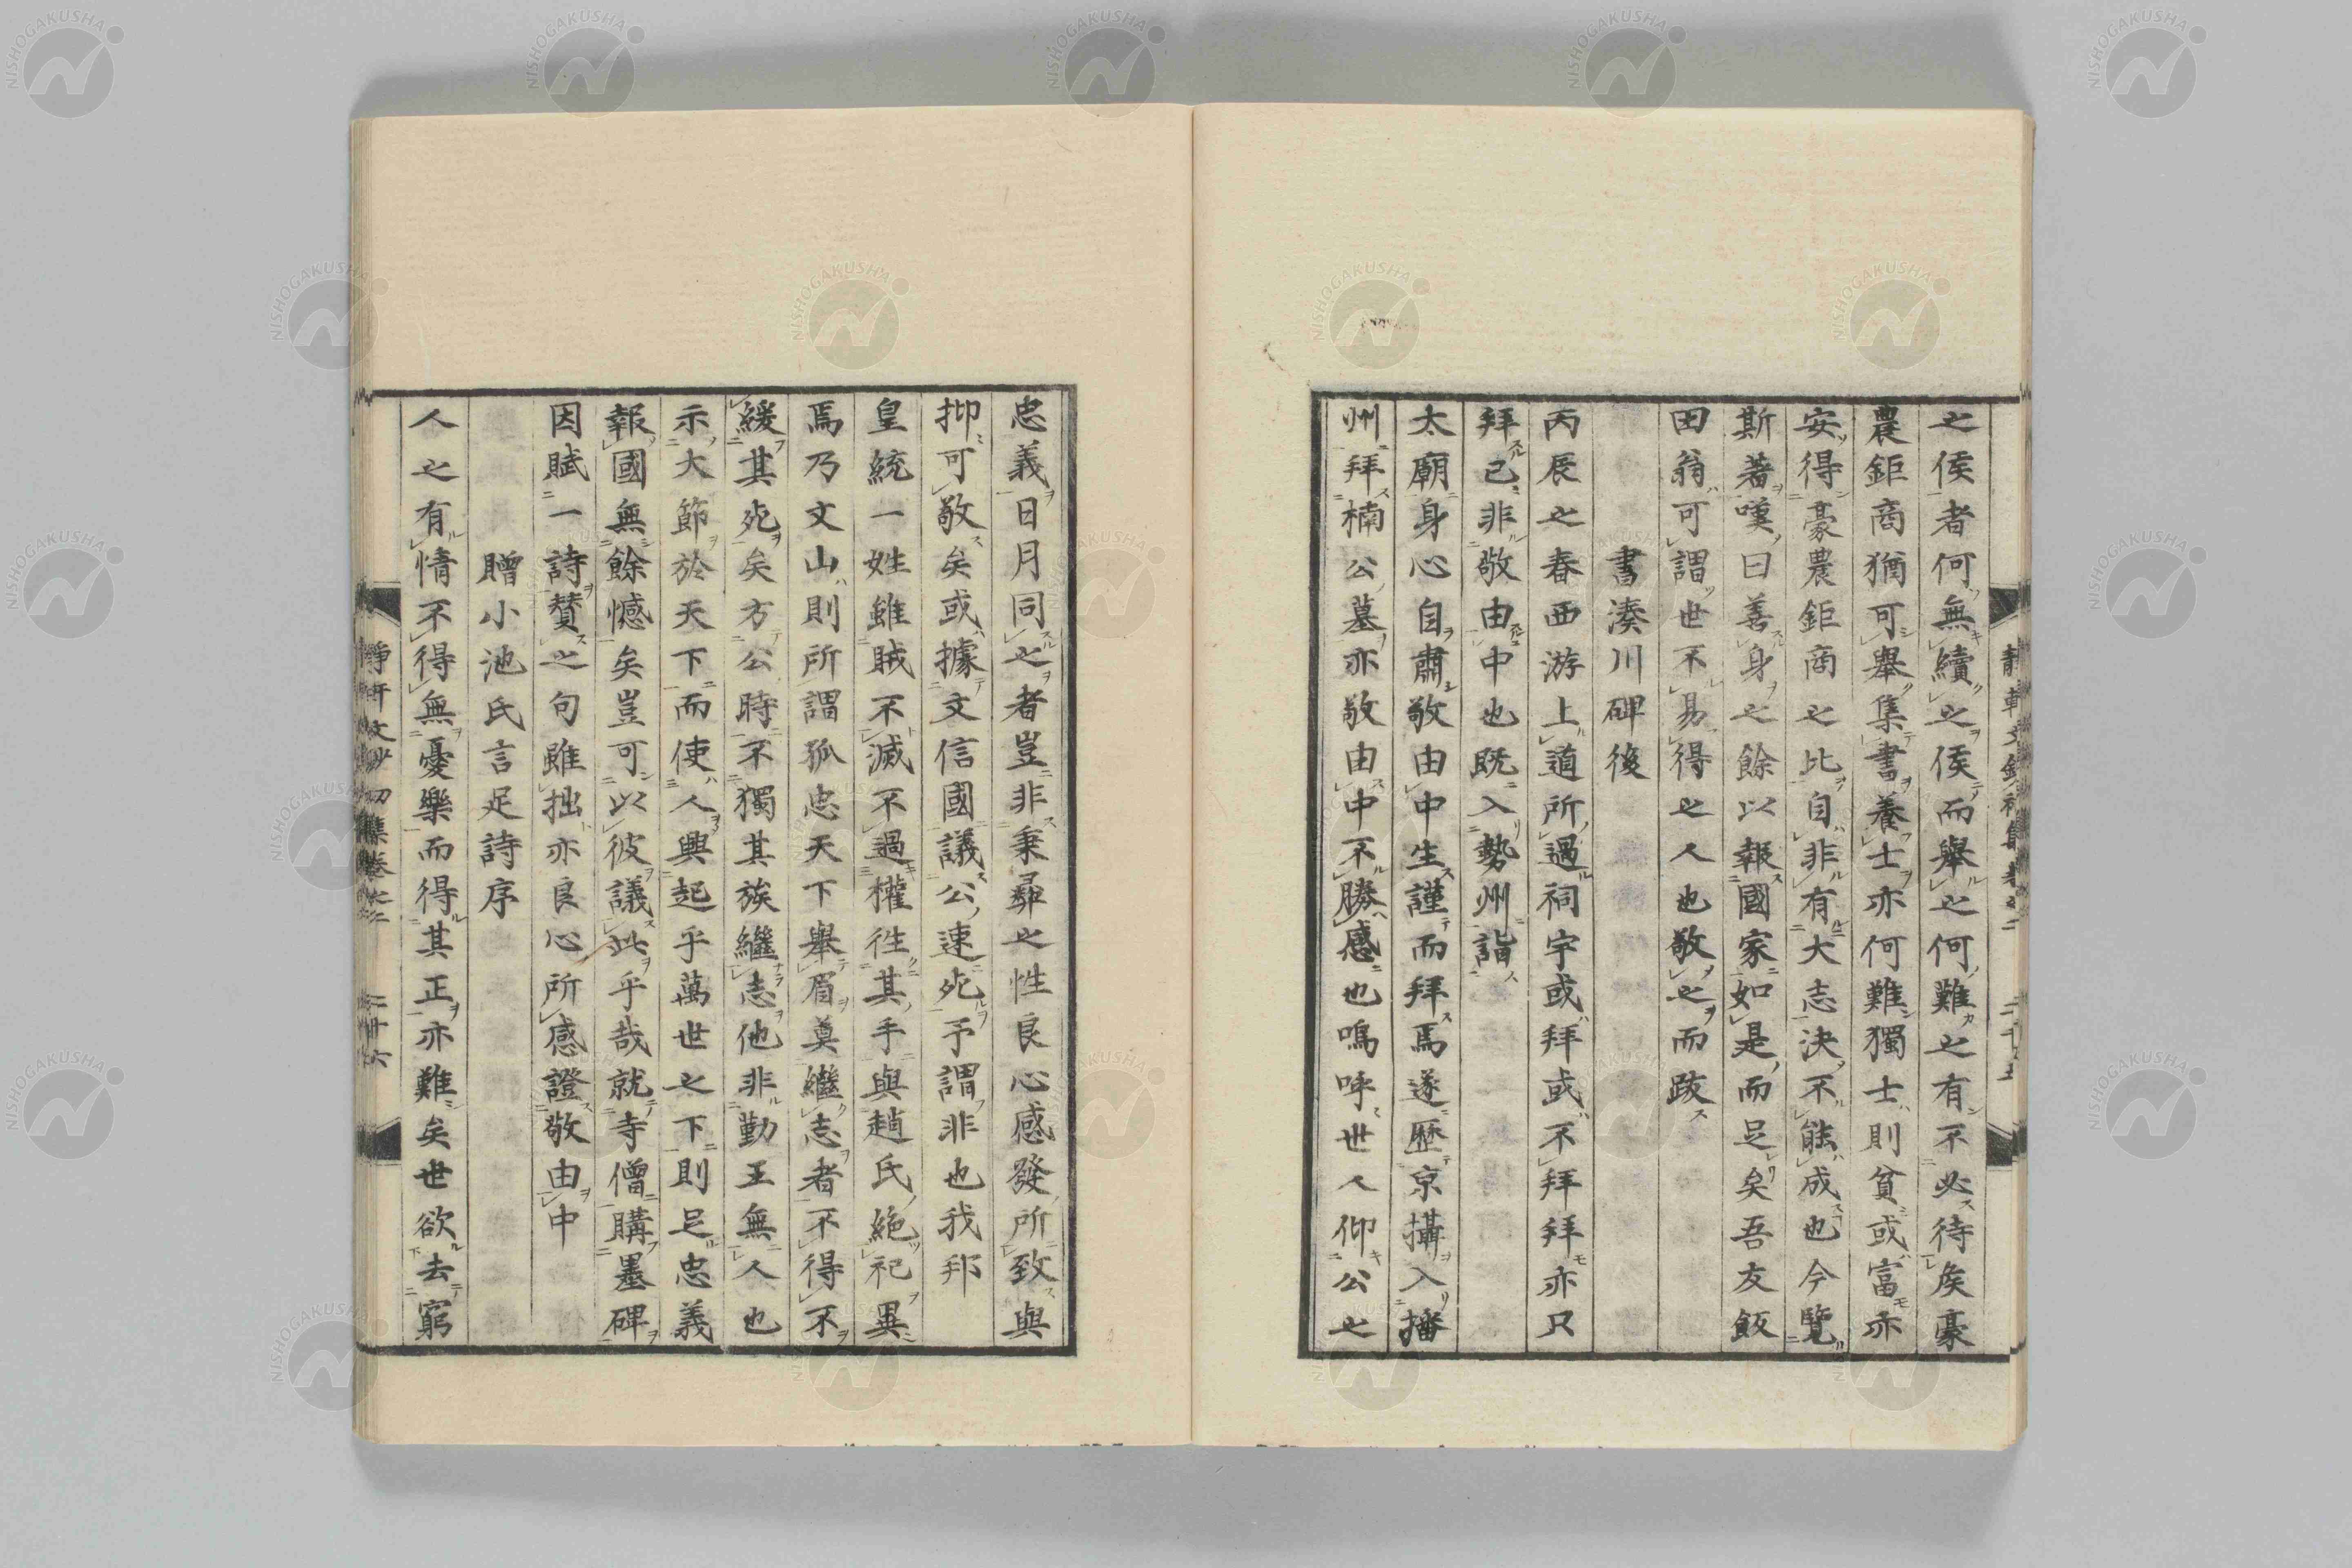 之俟者何無續之俟而舉之何難之有不必待矦豪
農鉅商猶可舉集書養士亦何難獨士則貧或富亦
安得豪農鉅商之比自非有大志決不能成也今覽
斯著嘆曰善身之餘以報國家如是而足矣吾友飯
田翁可謂世不易得之人也敬之而跋
書湊川碑後
丙辰之春西游上道所過祠宇或拜或不拜拜亦只
拜已非敬由中也既入勢州詣
太廟身心自肅敬由中生謹而拜焉遂歷京攝入播
州拜楠公墓亦敬由中不勝感也嗚呼世人仰公之
忠義日月同之者豈非秉彛之性良心感發所致與
抑可敬矣或據文信國議公速死予謂非也我邦
皇統一姓雖賊不滅不過權徃其手與趙氏絶祀異
焉乃文山則所謂孤忠天下舉眉莫繼志者不得不
緩其死矣方公時不獨其族繼志他非勤王無人也
示大節於天下而使人興起乎萬世之下則足忠義
報國無餘憾矣豈可以彼議此乎哉就寺僧購墨碑
因賦一詩賛之句雖拙亦良心所感證敬由中
贈小池氏言足詩序
人之有情不得無憂樂而得其正亦難矣世欲去窮
靜軒文鈔初集卷之二 二十六
NISHOGAKUSHA